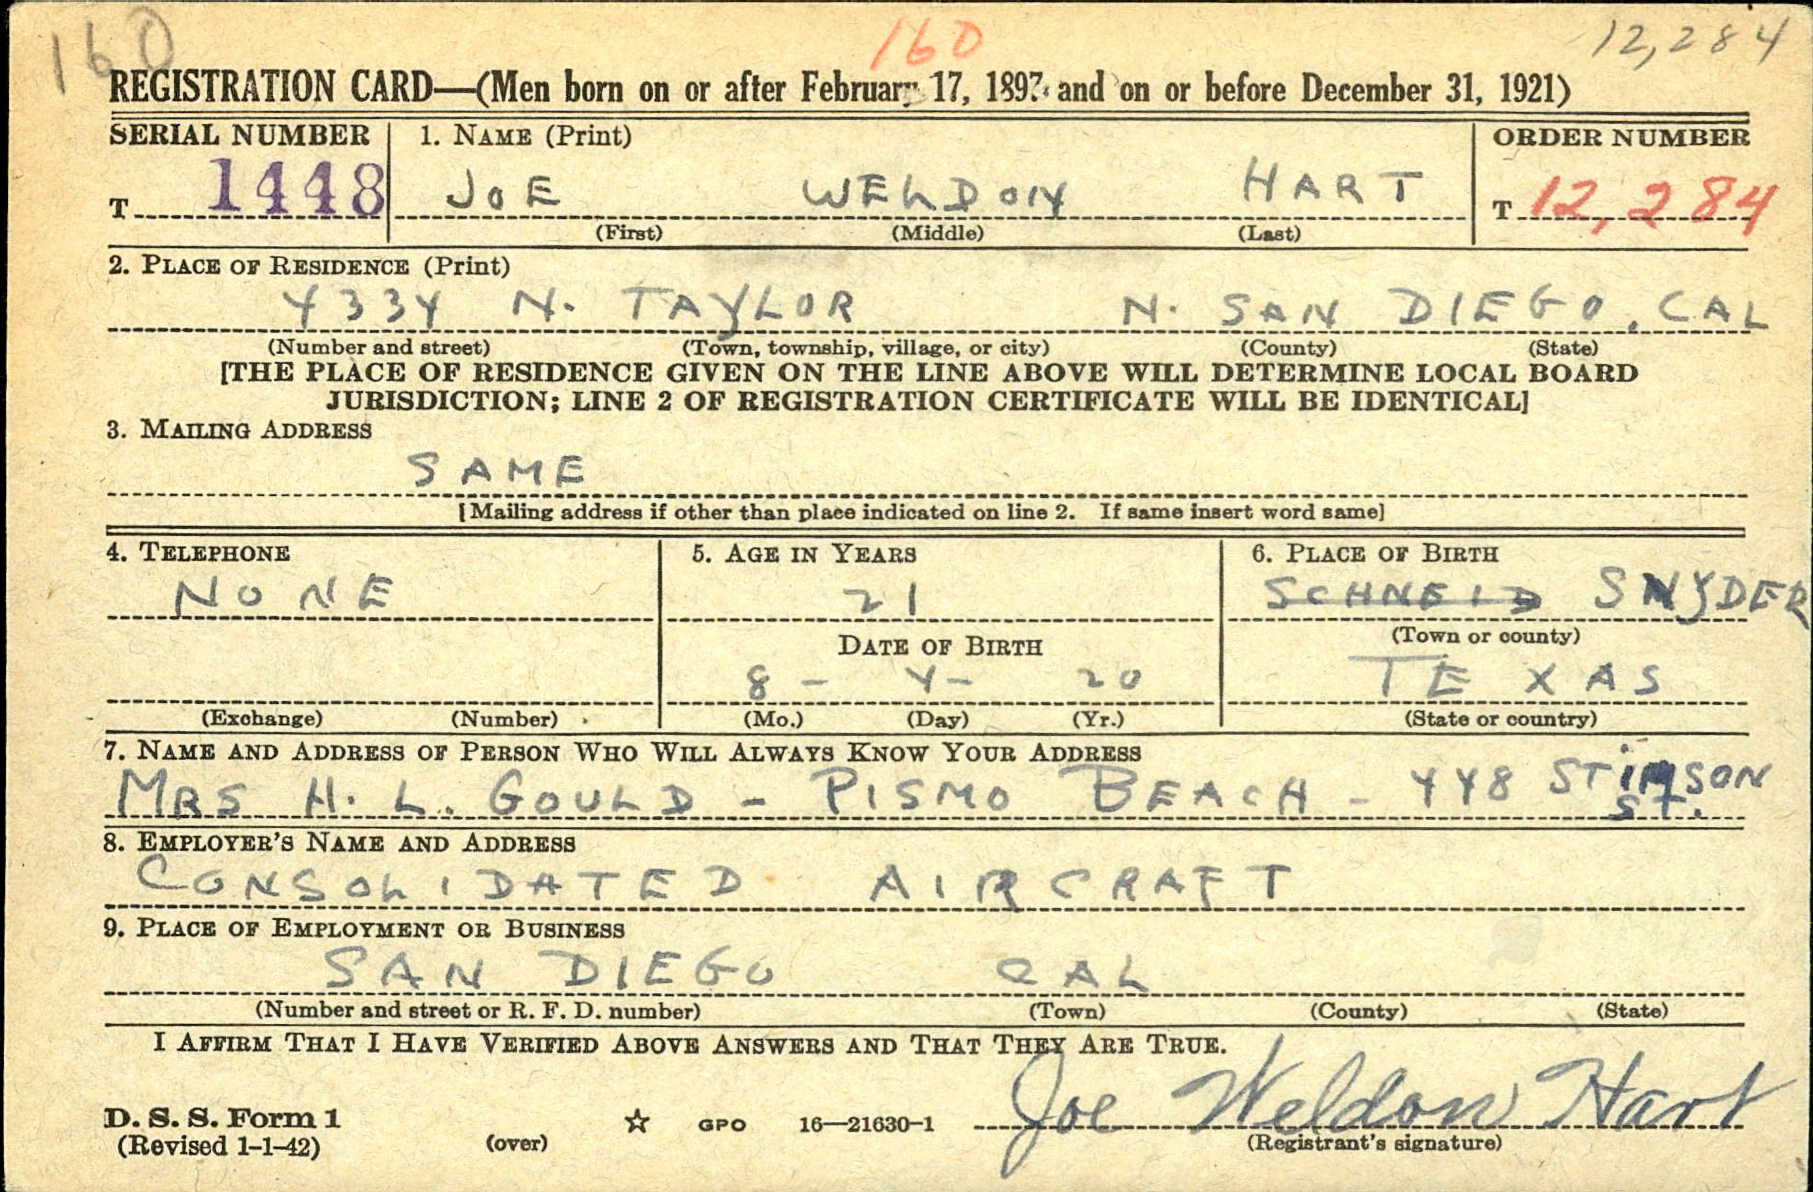 160 160 12,284
REGISTRATION CARD—(Men born on or after February 17, 1897 and on or before December 31, 1921)
SERIAL NUMBER 1. NAME (Print) ORDER NUMBER
T 1448 JOE WELDON HART T 12,284
(First) (Middle) (Last)
2. PLACE OF RESIDENCE (Print)
4334 N. TAYLOR N. SAN DIEGO, CAL
(Number and street) (Town, township, village, or city) (County) (State)
[THE PLACE OF RESIDENCE GIVEN ON THE LINE ABOVE WILL DETERMINE LOCAL BOARD
JURISDICTION; LINE 2 OF REGISTRATION CERTIFICATE WILL BE IDENTICAL]
3. MAILING ADDRESS
SAME
[Mailing address if other than place indicated on line 2. If same insert word same]
4. TELEPHONE 5. AGE IN YEARS 6. PLACE OF BIRTH
NONE 21 SCHNEID SNYDER
DATE OF BIRTH (Town or county)
8 - 4 - 20 TEXAS
(Exchange) (Number) (Mo.) (Day) (Yr.) (State or country)
7. NAME AND ADDRESS OF PERSON WHO WILL ALWAYS KNOW YOUR ADDRESS
MRS H. L. GOULD - PISMO BEACH - 448 STIMSON
ST.
8. EMPLOYER'S NAME AND ADDRESS
CONSOLIDATED AIRCRAFT
9. PLACE OF EMPLOYMENT OR BUSINESS
SAN DIEGO CAL
(Number and street or R. F. D. number) (Town) (County) (State)
I AFFIRM THAT I HAVE VERIFIED ABOVE ANSWERS AND THAT THEY ARE TRUE.
D. S. S. Form 1 ☆ GPO 16—21630-1 Joe Weldon Hart
(Revised 1-1-42) (over) (Registrant's signature)